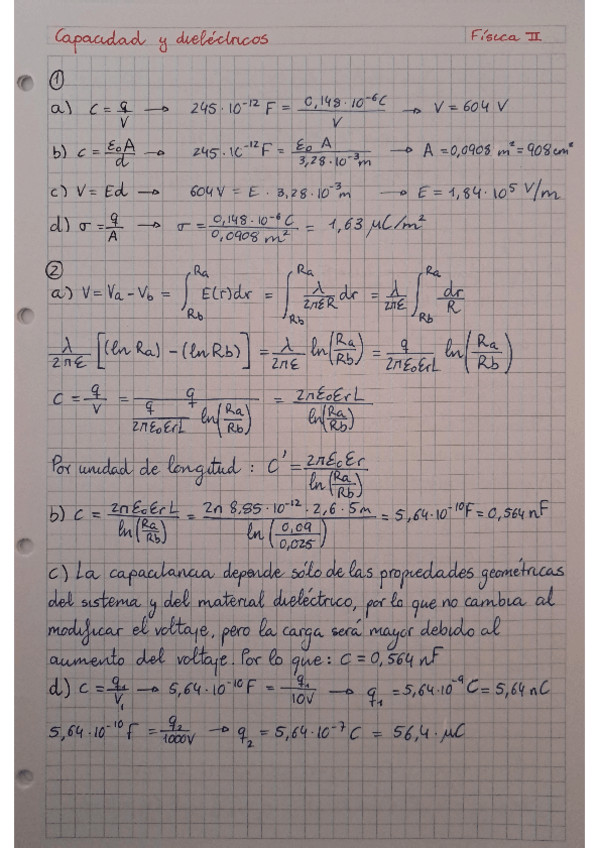 Capacidad y dieléctricos Física II
①
a) C = q/V → 245·10⁻¹² F = 0,148·10⁻⁶C/V → V = 604 V
b) C = ε₀A/d → 245·10⁻¹²F = ε₀ A/3,28·10⁻³m → A = 0,0908 m² = 908 cm²
c) V = Ed → 604V = E · 3,28·10⁻³m → E = 1,84·10⁵ V/m
d) σ = q/A → σ = 0,148·10⁻⁶C/0,0908 m² = 1,63 μC/m²
②
a) V = Va - Vb = ∫_Rb^Ra E(r)dr = ∫_Rb^Ra λ/2πεR dr = λ/2πε ∫_Rb^Ra dr/R
λ/2πε [(ln Ra) - (ln Rb)] = λ/2πε ln(Ra/Rb) = q/2πε₀εrL ln(Ra/Rb)
C = q/V = q/(q/2πε₀εrL ln(Ra/Rb)) = 2πε₀εrL/ln(Ra/Rb)
Por unidad de longitud : C' = 2πε₀εr/ln(Ra/Rb)
b) C = 2πε₀εrL/ln(Ra/Rb) = 2π 8,85·10⁻¹²·2,6·5m/ln(0,09/0,025) = 5,64·10⁻¹⁰F = 0,564 nF
c) La capacitancia depende sólo de las propiedades geométricas
del sistema y del material dieléctrico, por lo que no cambia al
modificar el voltaje, pero la carga será mayor debido al
aumento del voltaje. Por lo que: C = 0,564 nF
d) C = q₁/V₁ → 5,64·10⁻¹⁰F = q₁/10V → q₁ = 5,64·10⁻⁹C = 5,64 nC
5,64·10⁻¹⁰F = q₂/1000V → q₂ = 5,64·10⁻⁷C = 56,4·μC